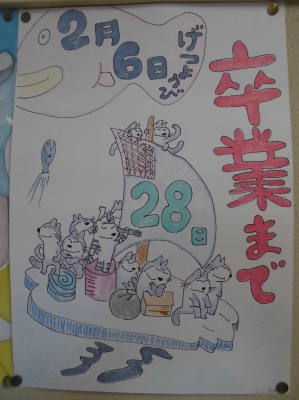 2月
6日
げつようび
卒業まで
28日